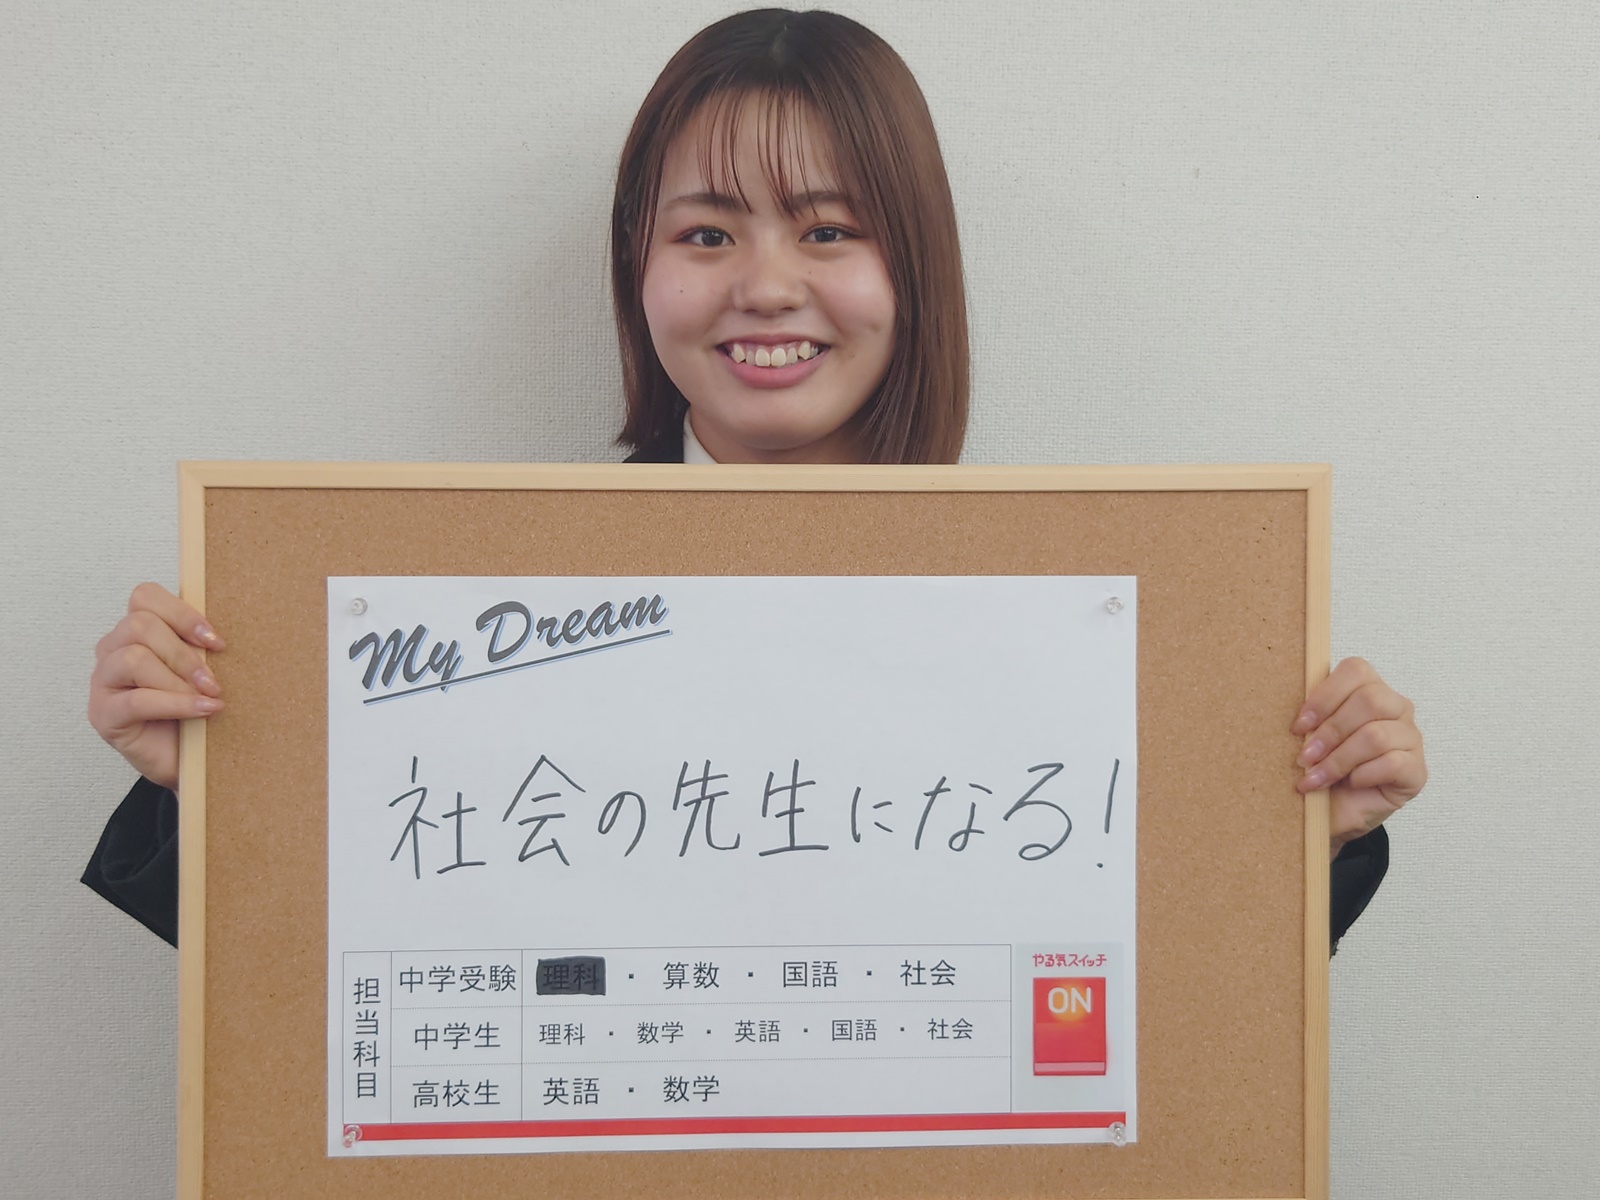 My Dream
社会の先生になる!
担当科目
中学受験 理科 ・ 算数 ・ 国語 ・ 社会
中学生 理科 ・ 数学 ・ 英語 ・ 国語 ・ 社会
高校生 英語 ・ 数学
やる気スイッチ
ON